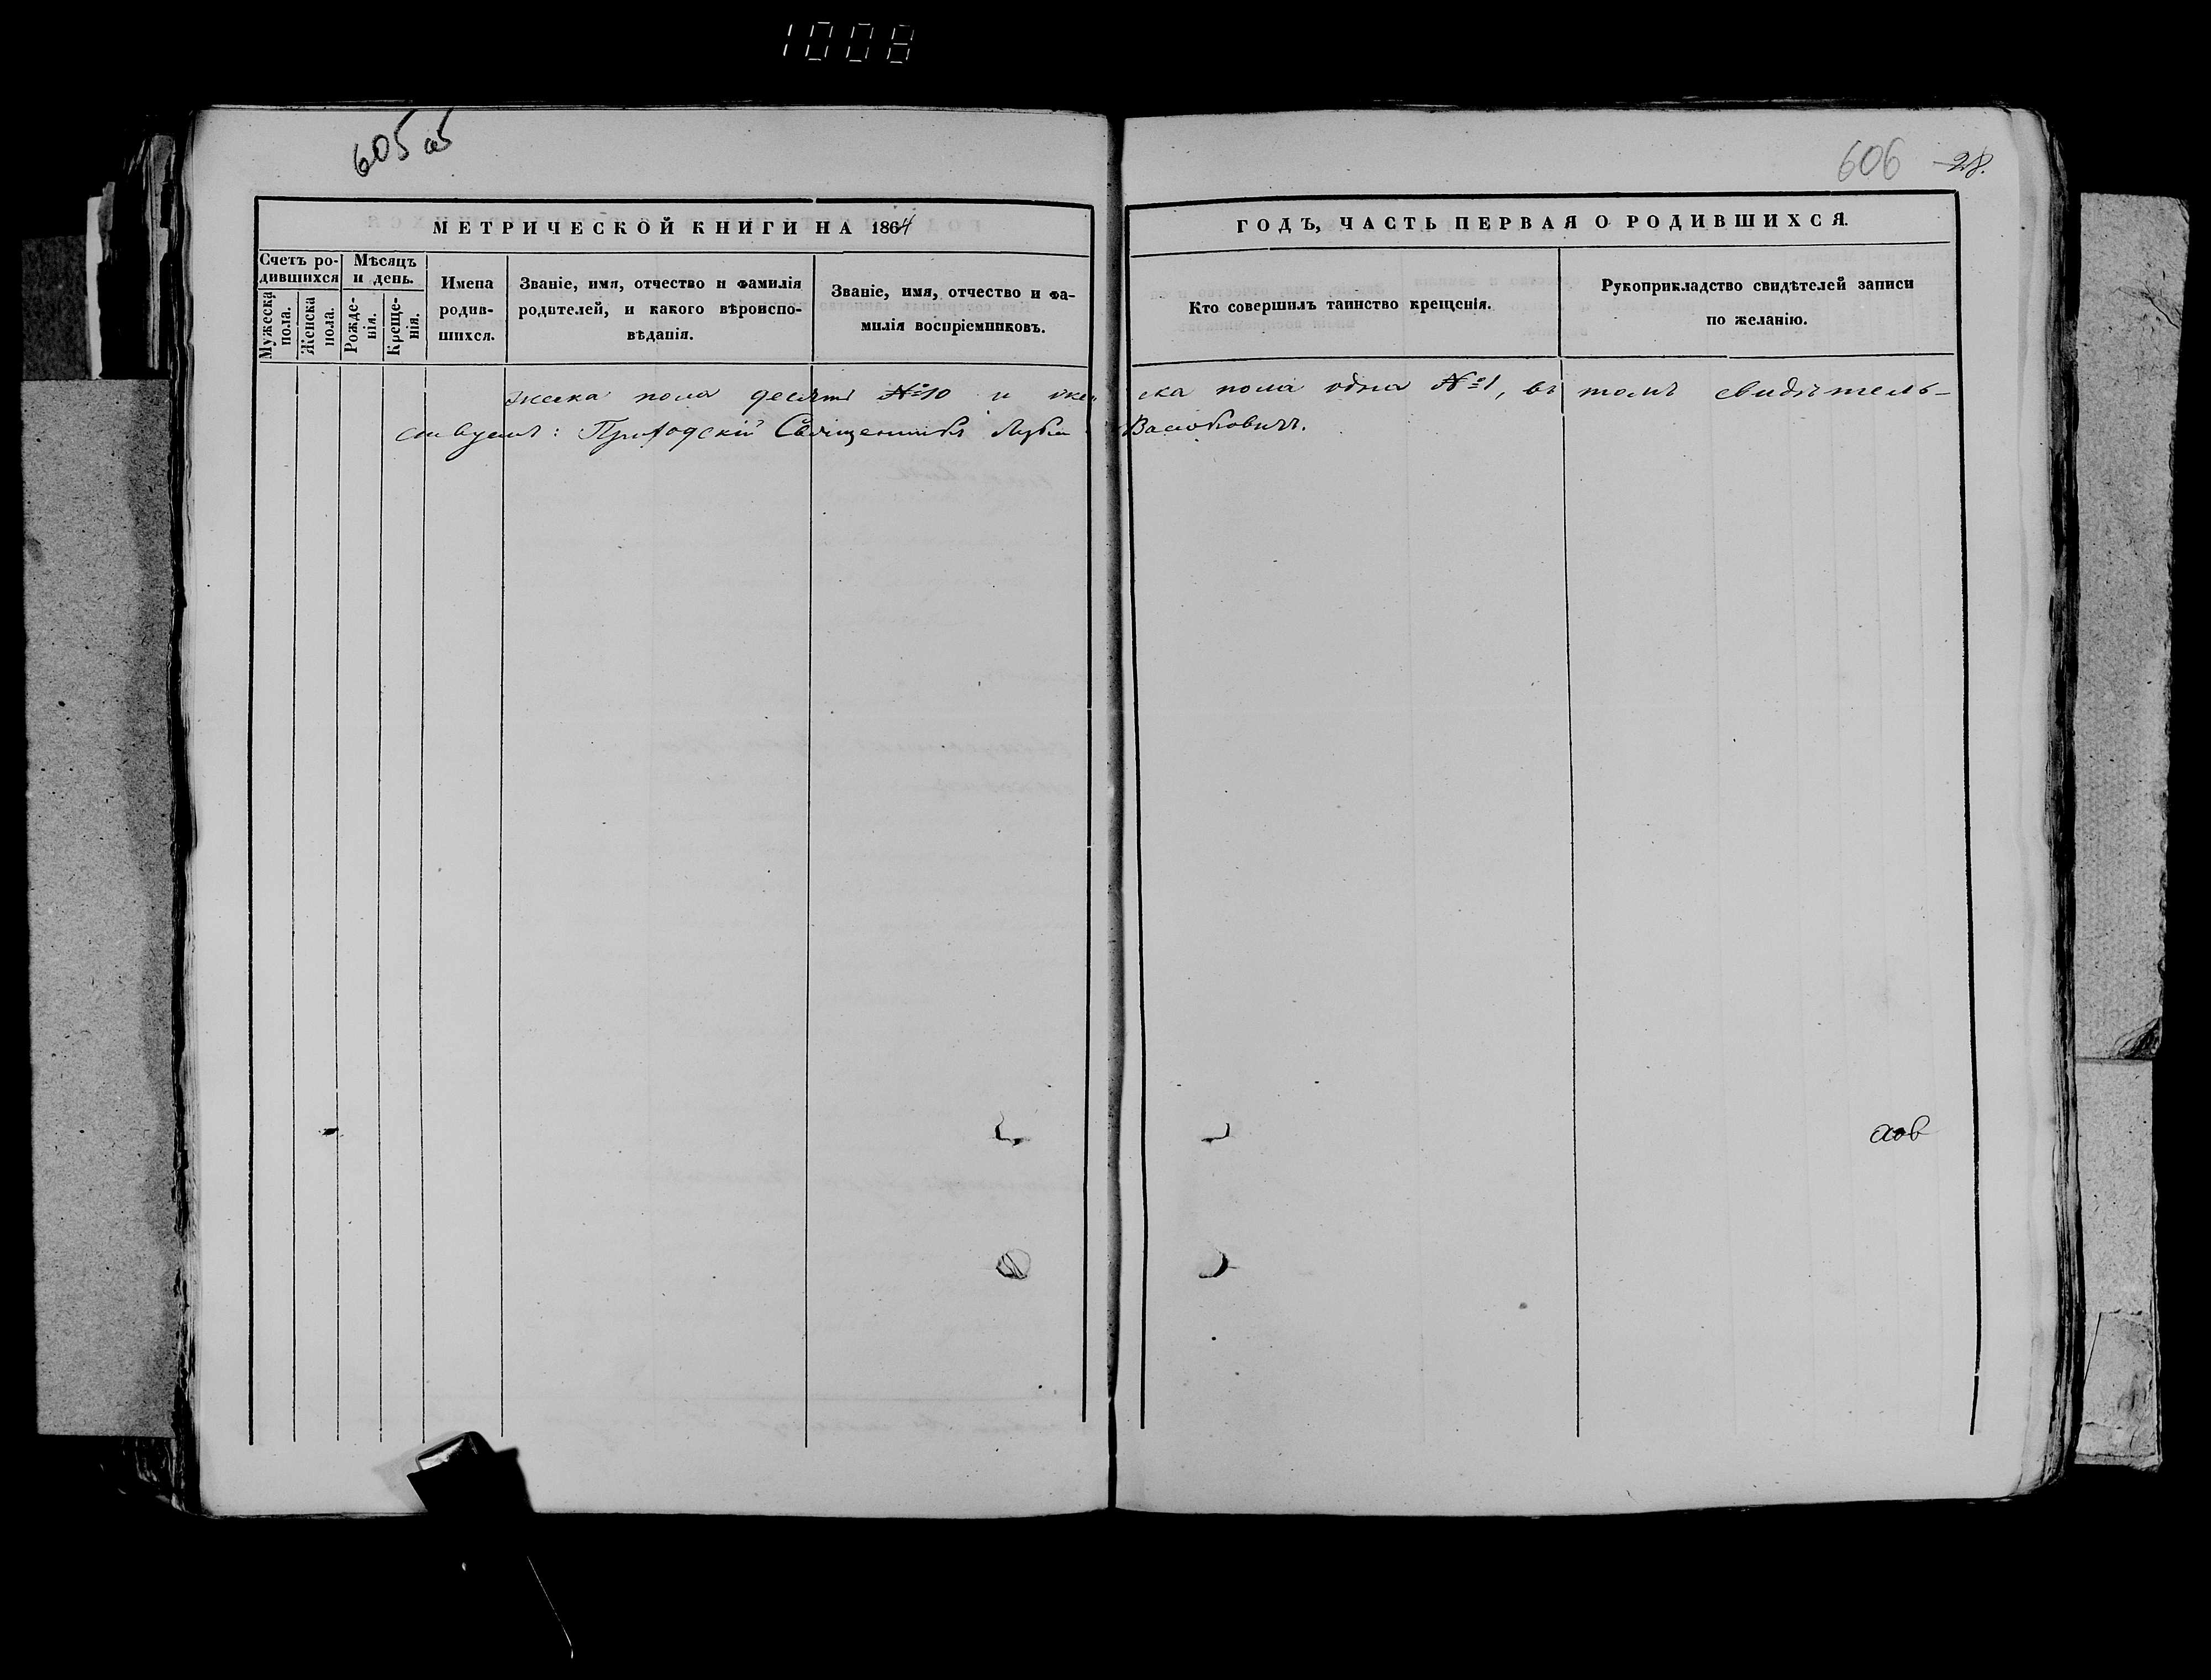 1008
605 об
606 28.
МЕТРИЧЕСКОЙ КНИГИ НА 1864
ГОДЪ, ЧАСТЬ ПЕРВАЯ О РОДИВШИХСЯ.
Счетъ родившихся
Мужеска пола.
Женска пола.
Мѣсяцъ и день.
Рожденія.
Крещенія.
Имена родившихся.
Званіе, имя, отчество и фамилія родителей, и какого вѣроисповѣданія.
Званіе, имя, отчество и фамилія воспріемниковъ.
Кто совершилъ таинство крещенія.
Рукоприкладство свидѣтелей записи по желанію.
жеска пола десять №10 и жен ска пола одна №1, въ томъ свидѣтель-
ствуетъ: Приходскій Священникъ Васюковичъ.